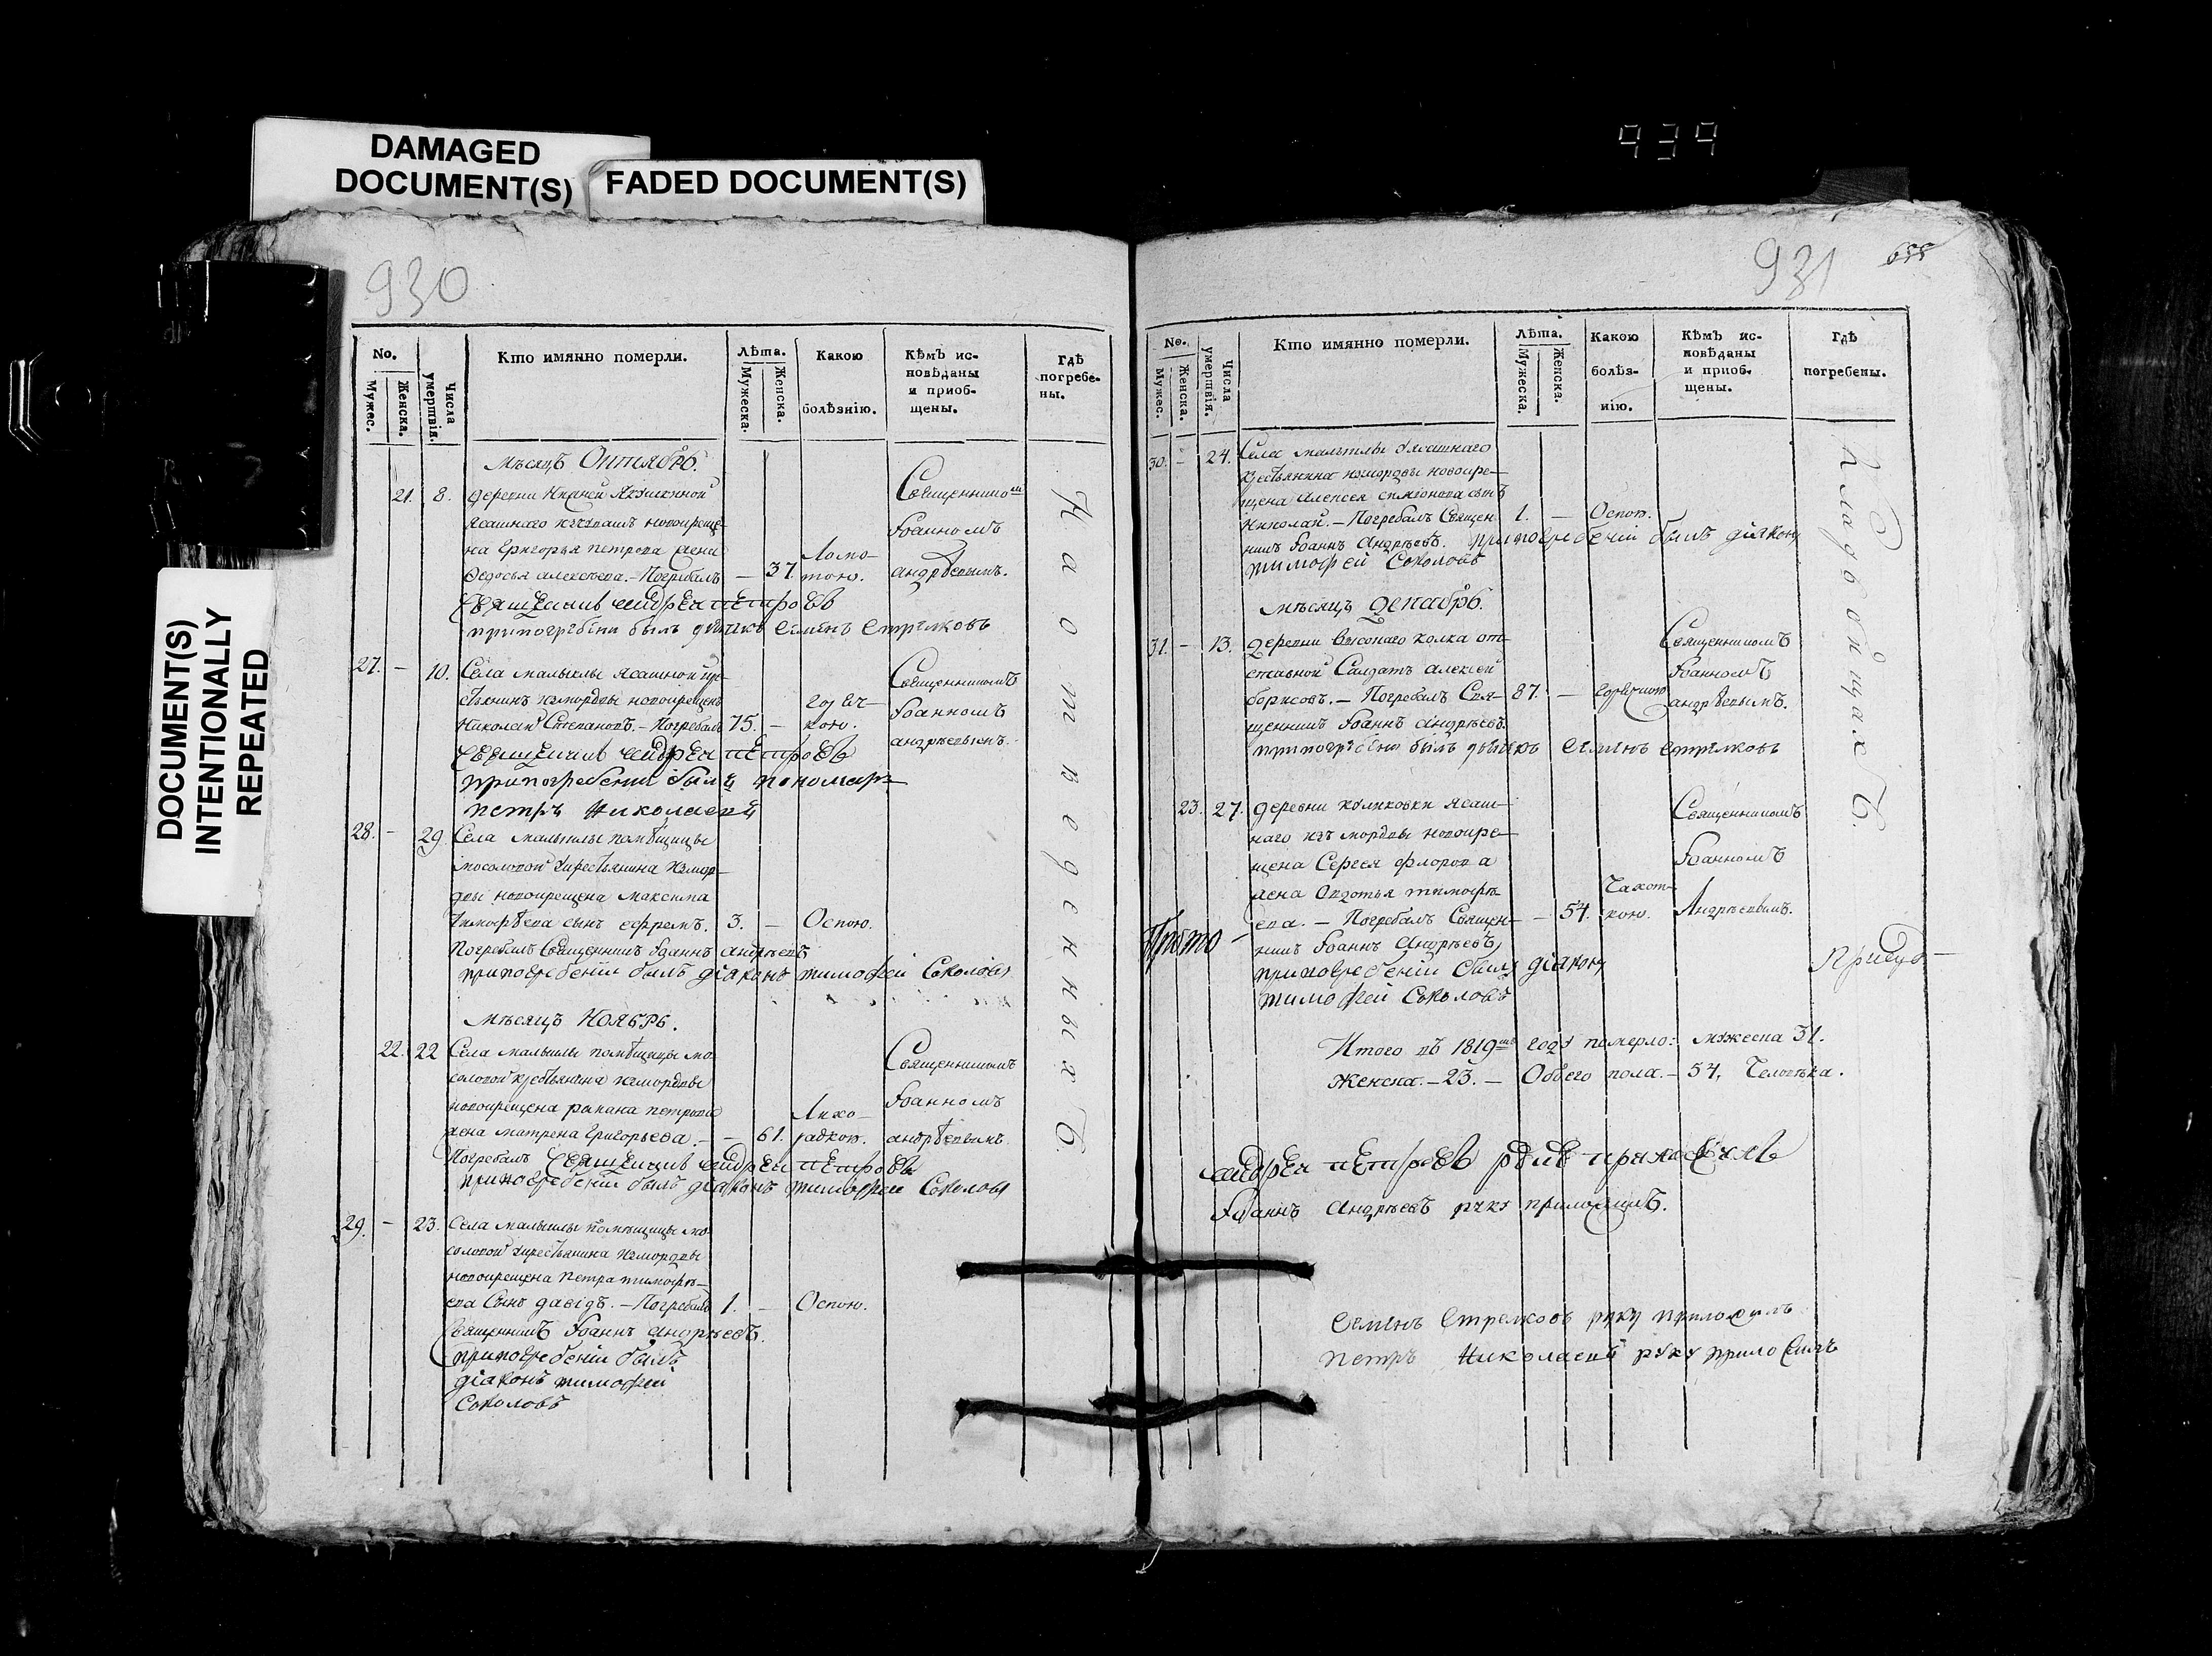 DAMAGED
DOCUMENT(S)
FADED DOCUMENT(S)
DOCUMENT(S)
INTENTIONALLY
REPEATED
939
930
No.
Мужес.
Женска.
Числа умертвія.
Кто имянно померли.
Лѣта.
Мужеска.
Женска.
Какою
болѣзнію.
Кѣмъ ис-
повѣданы
и приоб-
щены.
Гдѣ
погребе-
ны.
Мѣсяцъ Октябрь.
21. 8. деревни
ясашнаго новокреще-
на Григорья Петрова жена
Федосья Алексѣева. – Погребалъ – 37. Ломо-
тою.
Священникъ Андрей Петровъ
при погребени былъ дьячекъ Семенъ Стрелковъ
Священнико
Іоанномъ
Андрѣевымъ.
27. – 10. Села Малыклы ясашной кре-
стьянинъ измордвы новокрещенъ
Николай Степановъ. – Погребалъ 75. – горяч-
кою.
Священникъ Андрей Петровъ
при погребении былъ пономарь
Петръ Николаевъ
Священникомъ
Іоанномъ
Андрѣевымъ.
28. – 29. Села Малыклы помѣщицы
Мосоловой крестьянина измор-
двы новокрещена Максима
Тимофѣева сынъ Ефремъ. 3. – Оспою.
Погребалъ Священникъ Іоаннъ Андрѣевъ
при погребеніи былъ діаконъ Тимофей Соколовъ
Мѣсяцъ Ноябрь.
22. 22 Села Малыклы помѣщицы Мо-
соловой крестьянина измордвы
новокрещена Романа Петрова
жена Матрена Григорьева. – – 61. Лихо-
радкою.
Погребалъ Священникъ Андрей Петровъ
при погребеніи былъ діаконъ Тимофей Соколовъ
Священникомъ
Іоанномъ
Андрѣевымъ.
29. – 23. Села Малыклы помѣщицы Мо-
соловой крестьянина измордвы
новокрещена Петра Тимофѣ-
ева сынъ Давідъ. – Погребалъ 1. – Оспою.
Священникъ Іоаннъ Андрѣевъ.
при погребеніи былъ
діаконъ Тимофей
Соколовъ
На отведенныхъ
931
No.
Мужес.
Женска.
Числа умертвія.
Кто имянно померли.
Лѣта.
Мужеска.
Женска.
Какою
болѣз-
нію.
Кѣмъ ис-
повѣданы
и приоб-
щены.
Гдѣ
погребены.
30. – 24. Села Малыклы ясашнаго
крестьянина измордвы новокре-
щена Алексея Симіонова сынъ
Николай. – Погребалъ Священ- 1. – Оспою.
никъ Іоаннъ Андрѣевъ. при погребеніи былъ діаконъ
Тимофей Соколовъ
Мѣсяцъ Декабрь.
31. – 13. Деревни Высокаго Колка от-
ставной Салдатъ Алексей
Борисовъ. – Погребалъ Свя- 87. – горячкою
щенникъ Іоаннъ Андрѣевъ.
при погребени былъ дьячекъ Семенъ Стрелковъ
Священникомъ
Іоанномъ
Андрѣевымъ.
23. 27. Деревни Куликовки ясаш-
наго изъ мордвы новокре-
щена Сергея Флорова
жена Овдотья Тимофѣ-
ева. – Погребалъ Священ- – 54. Чахот-
кою.
никъ Іоаннъ Андрѣевъ
при погребеніи былъ діаконъ
Тимофей Соколовъ
Священникомъ
Іоанномъ
Андрѣевымъ.
Кладбойщахъ.
Прото-
Итого въ 1819мъ году померло: мужеска 31.
женска. – 23. – Обоего пола. – 54. Человѣка.
Андрей Петровъ руку приложилъ
Іоаннъ Андрѣевъ руку приложилъ.
Семенъ Стрелковъ руку приложилъ
Петръ Николаевъ руку приложилъ